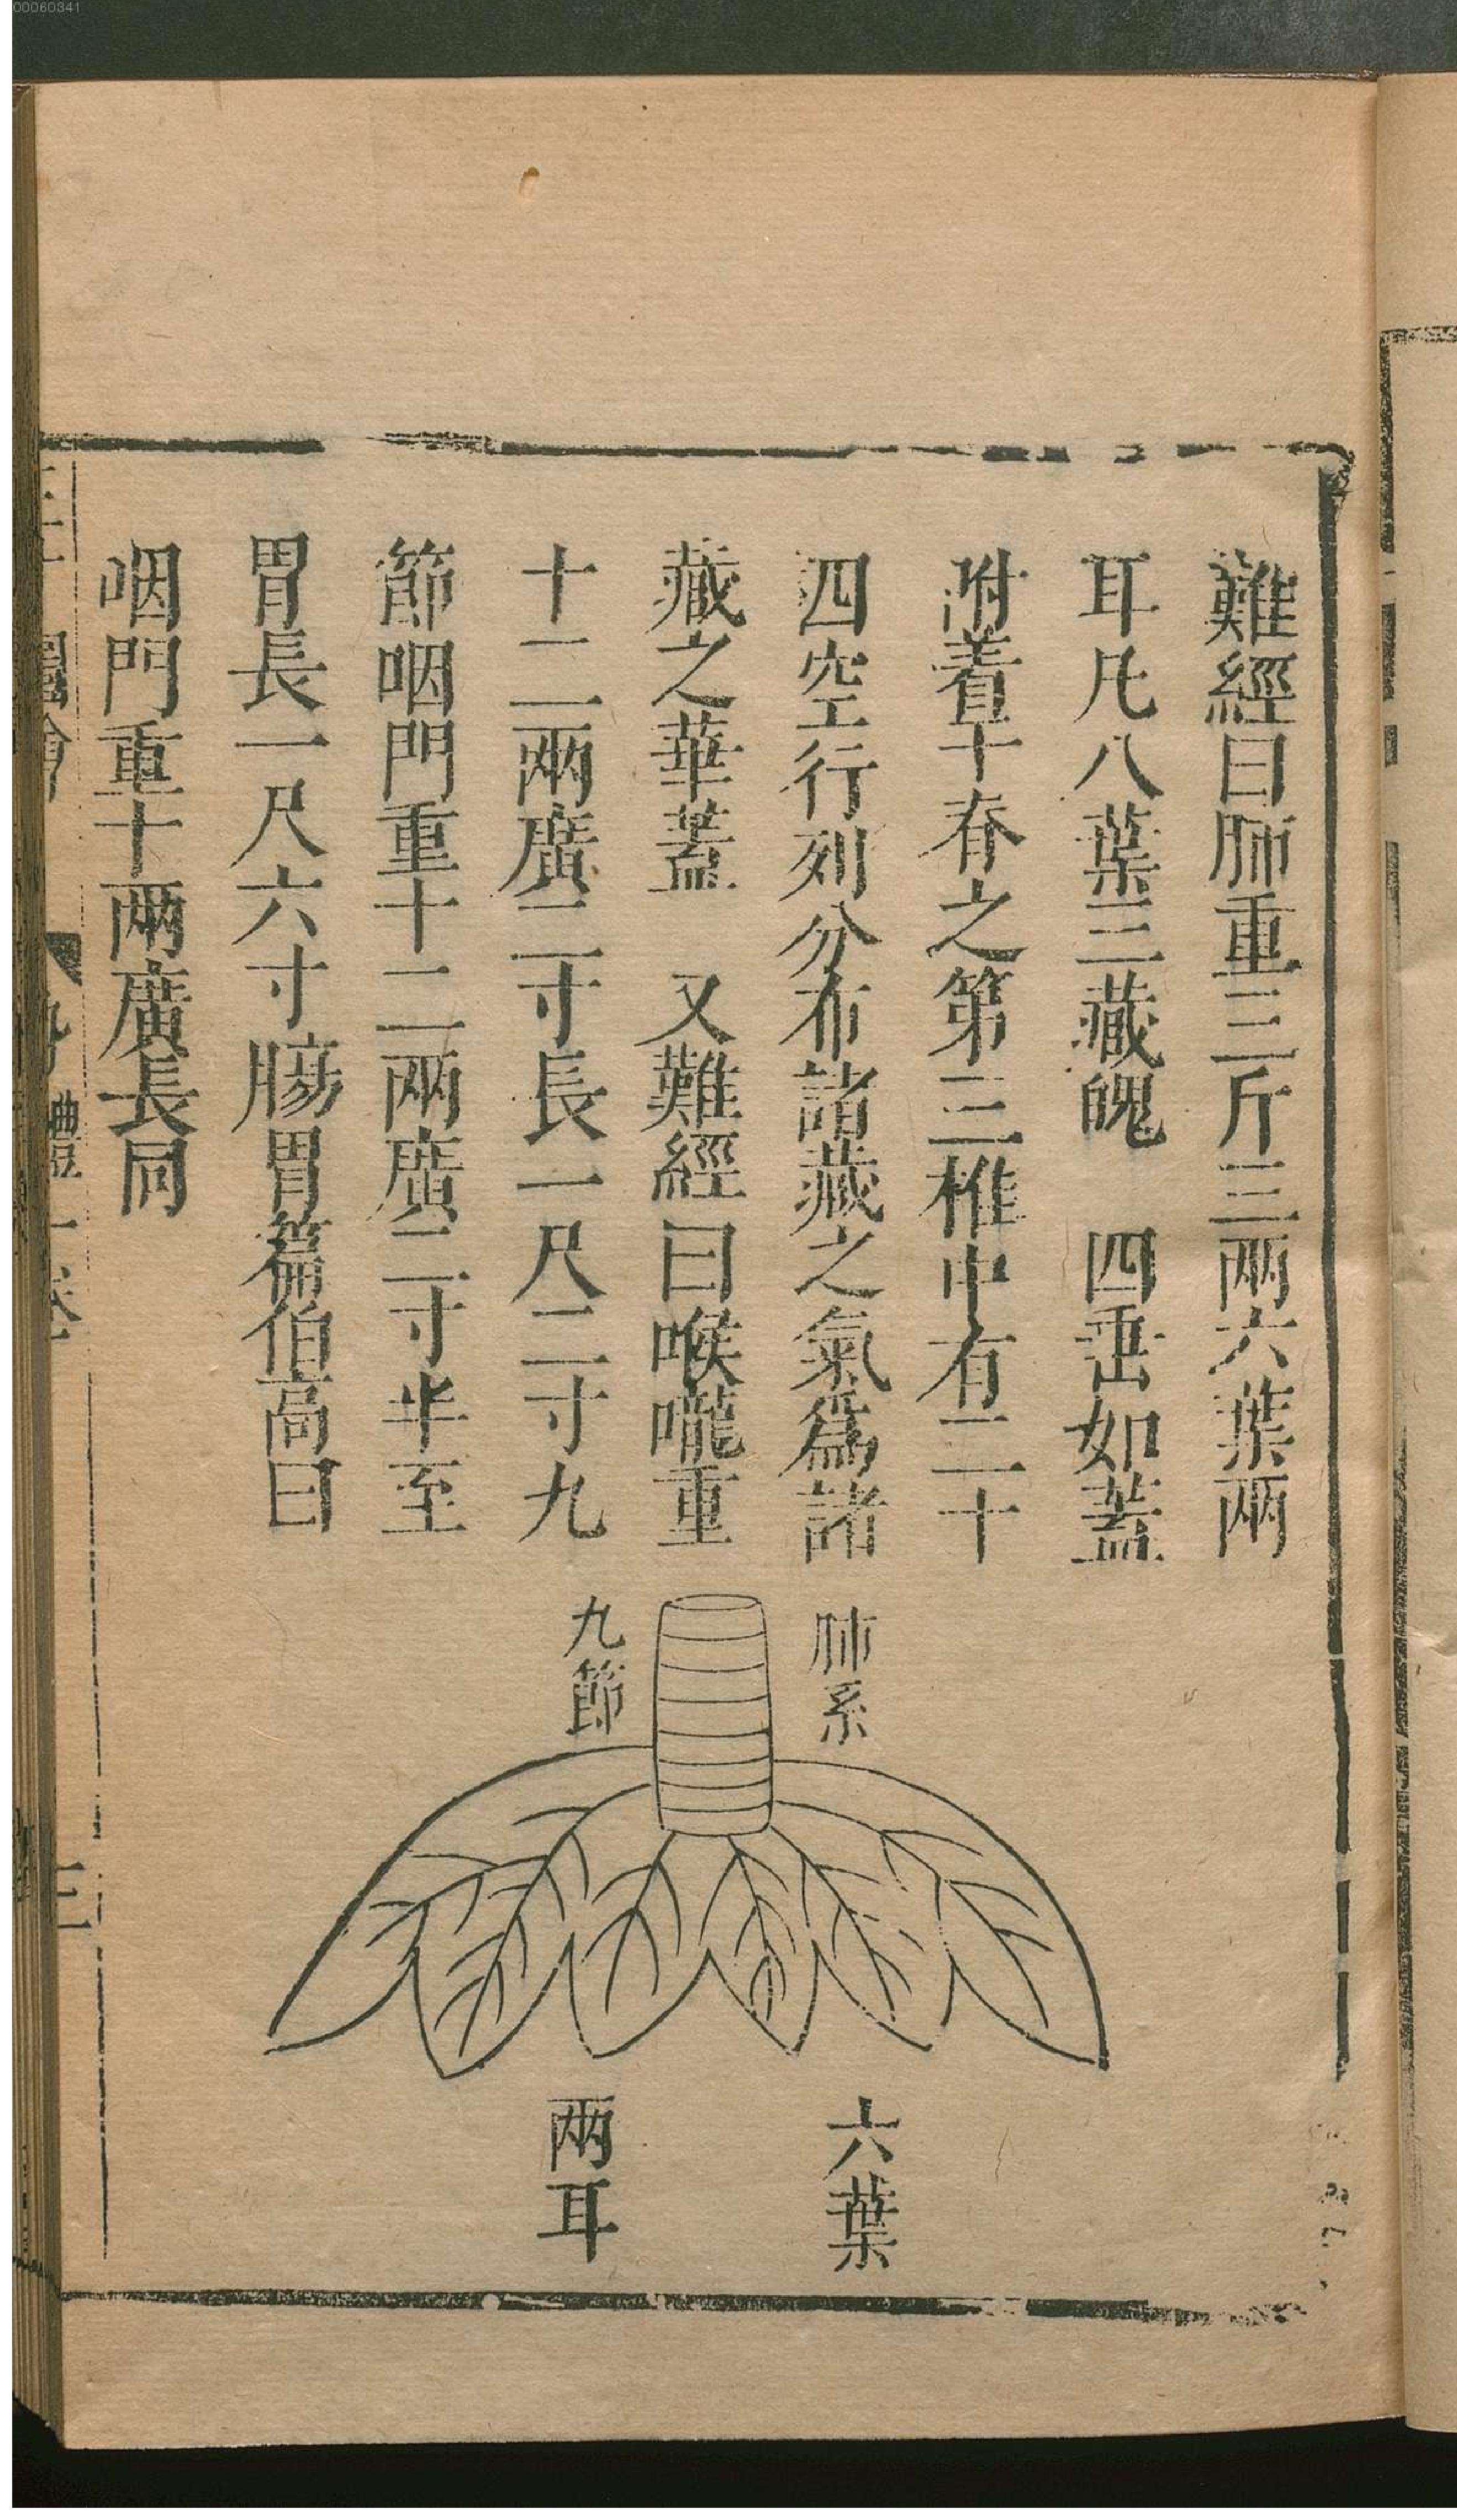 00060341
難經曰肺重三斤三兩六葉兩
耳凡八葉三藏魄　四垂如蓋
附着于脊之第三椎中有二十
四空行列分布諸藏之氣爲諸
藏之華蓋　又難經曰喉嚨重
十二兩廣二寸長一尺二寸九
節咽門重十二兩廣二寸半至
胃長一尺六寸腸胃篇伯高曰
咽門重十兩廣長同
肺系
九節
六葉
兩耳
圖會
身體一卷
三